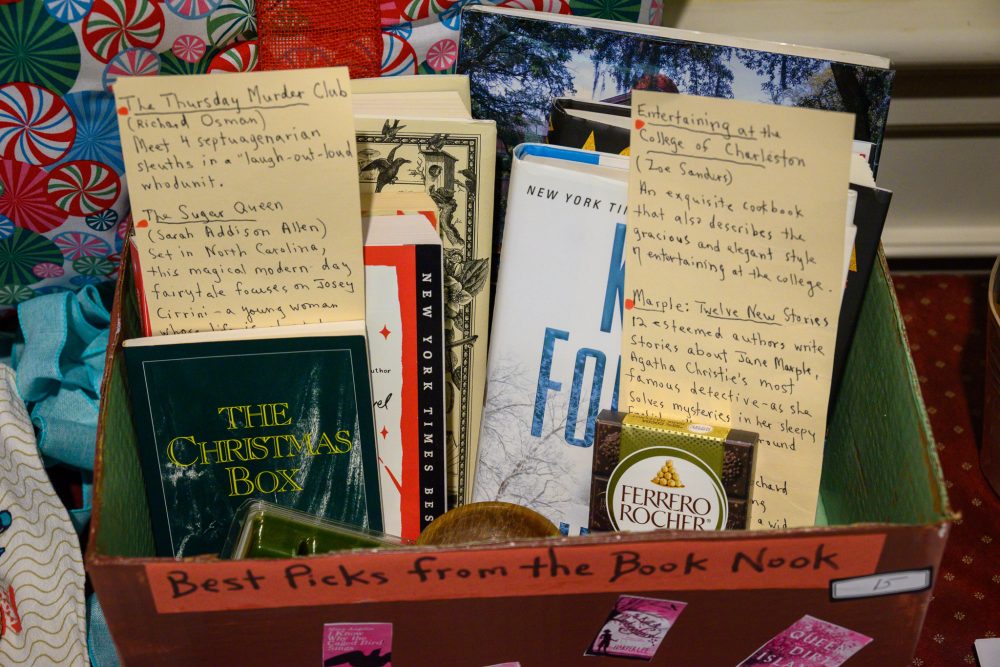 The Thursday Murder Club
(Richard Osman)
Meet 4 septuagenarian
sleuths in a "laugh-out-loud
whodunit.
The Sugar Queen
(Sarah Addison Allen)
Set in North Carolina,
this magical modern-day
fairytale focuses on Josey
Cirrini - a young woman
Entertaining at the
College of Charleston
(Zoe Sanders)
An exquisite cookbook
that also describes the
gracious and elegant style
of entertaining at the college.
Marple: Twelve New Stories
12 esteemed authors write
stories about Jane Marple,
Agatha Christie's most
famous detective - as she
solves mysteries in her sleepy
THE
CHRISTMAS
BOX
NEW YORK TIMES BES
NEW YORK TIM
FERRERO
ROCHER
Best Picks from the Book Nook
15
I Know
Why the
Caged Bird
Sings
HARPER LEE